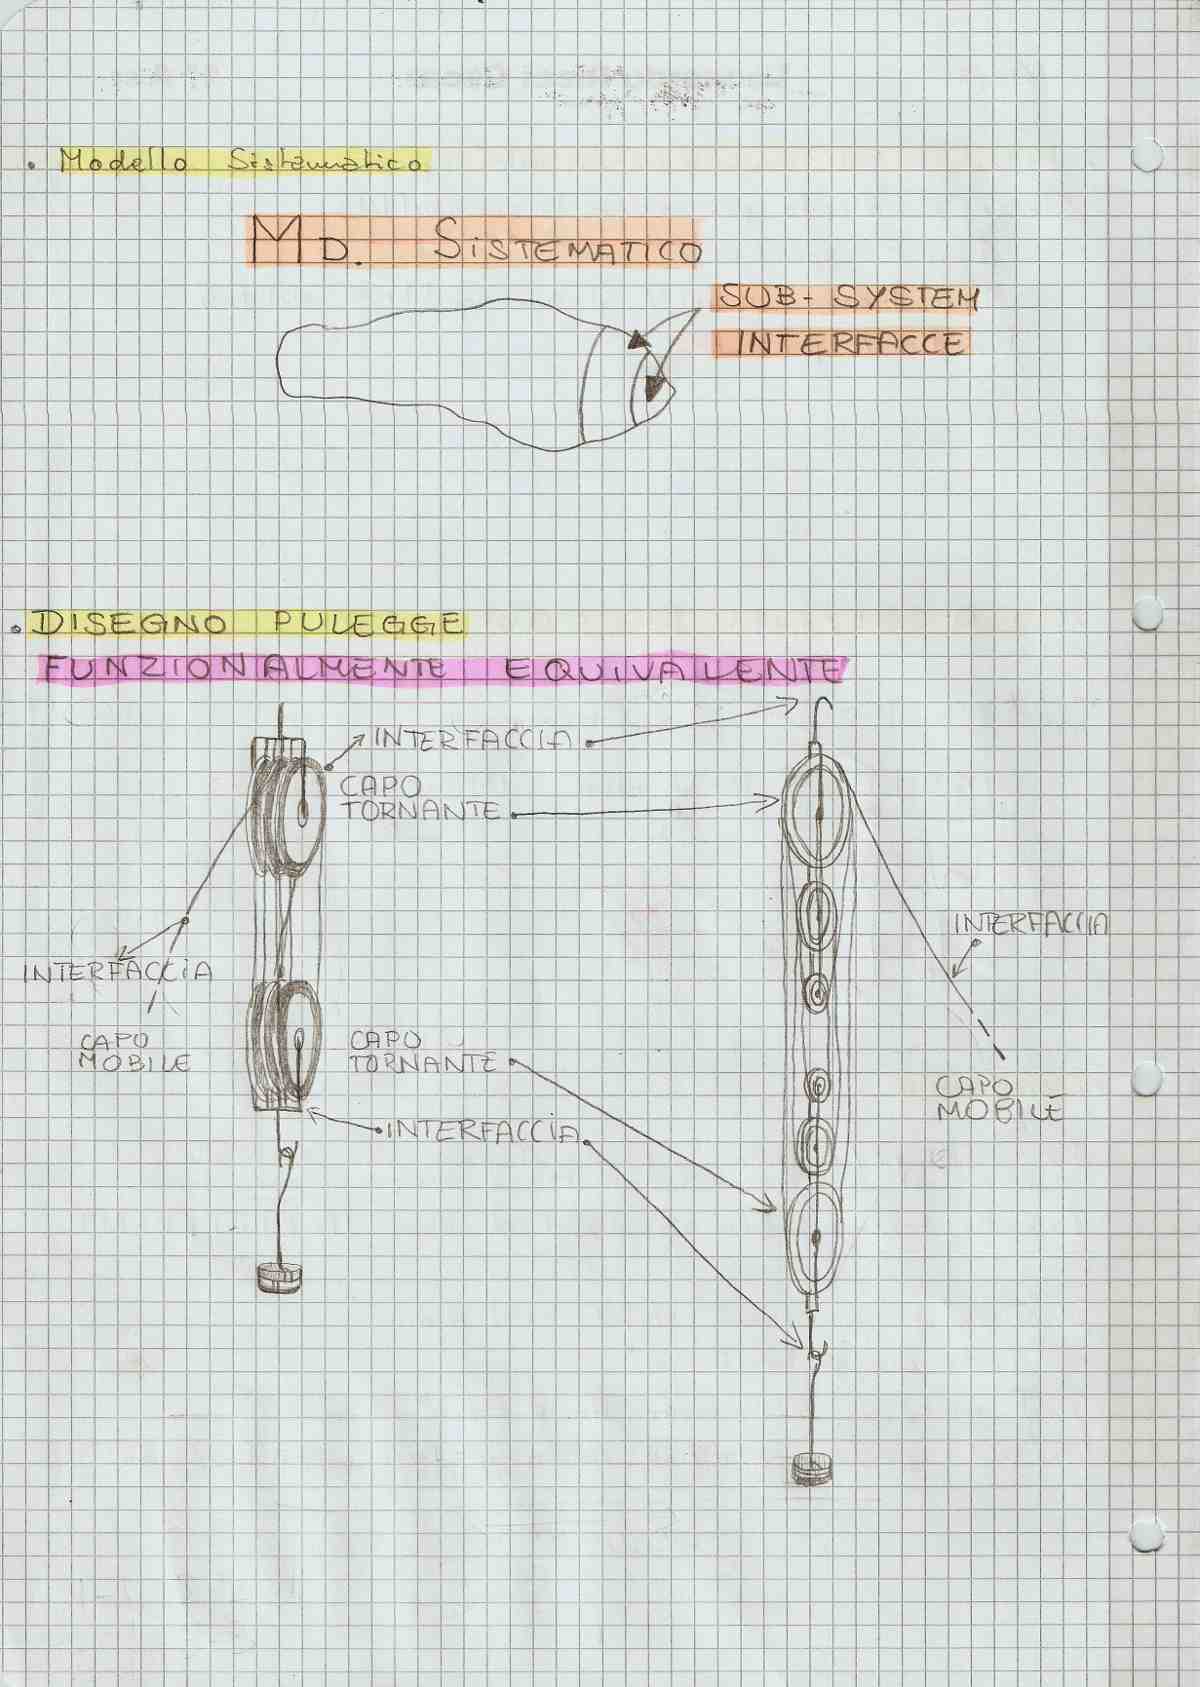 . Modello Sistematico
MD. SISTEMATICO
SUB-SYSTEM
INTERFACCE
. DISEGNO PULEGGE
FUNZIONALMENTE EQUIVALENTE
INTERFACCIA
CAPO
TORNANTE
INTERFACCIA
INTERFACCIA
CAPO
MOBILE
CAPO
TORNANTE
CAPO
MOBILE
INTERFACCIA